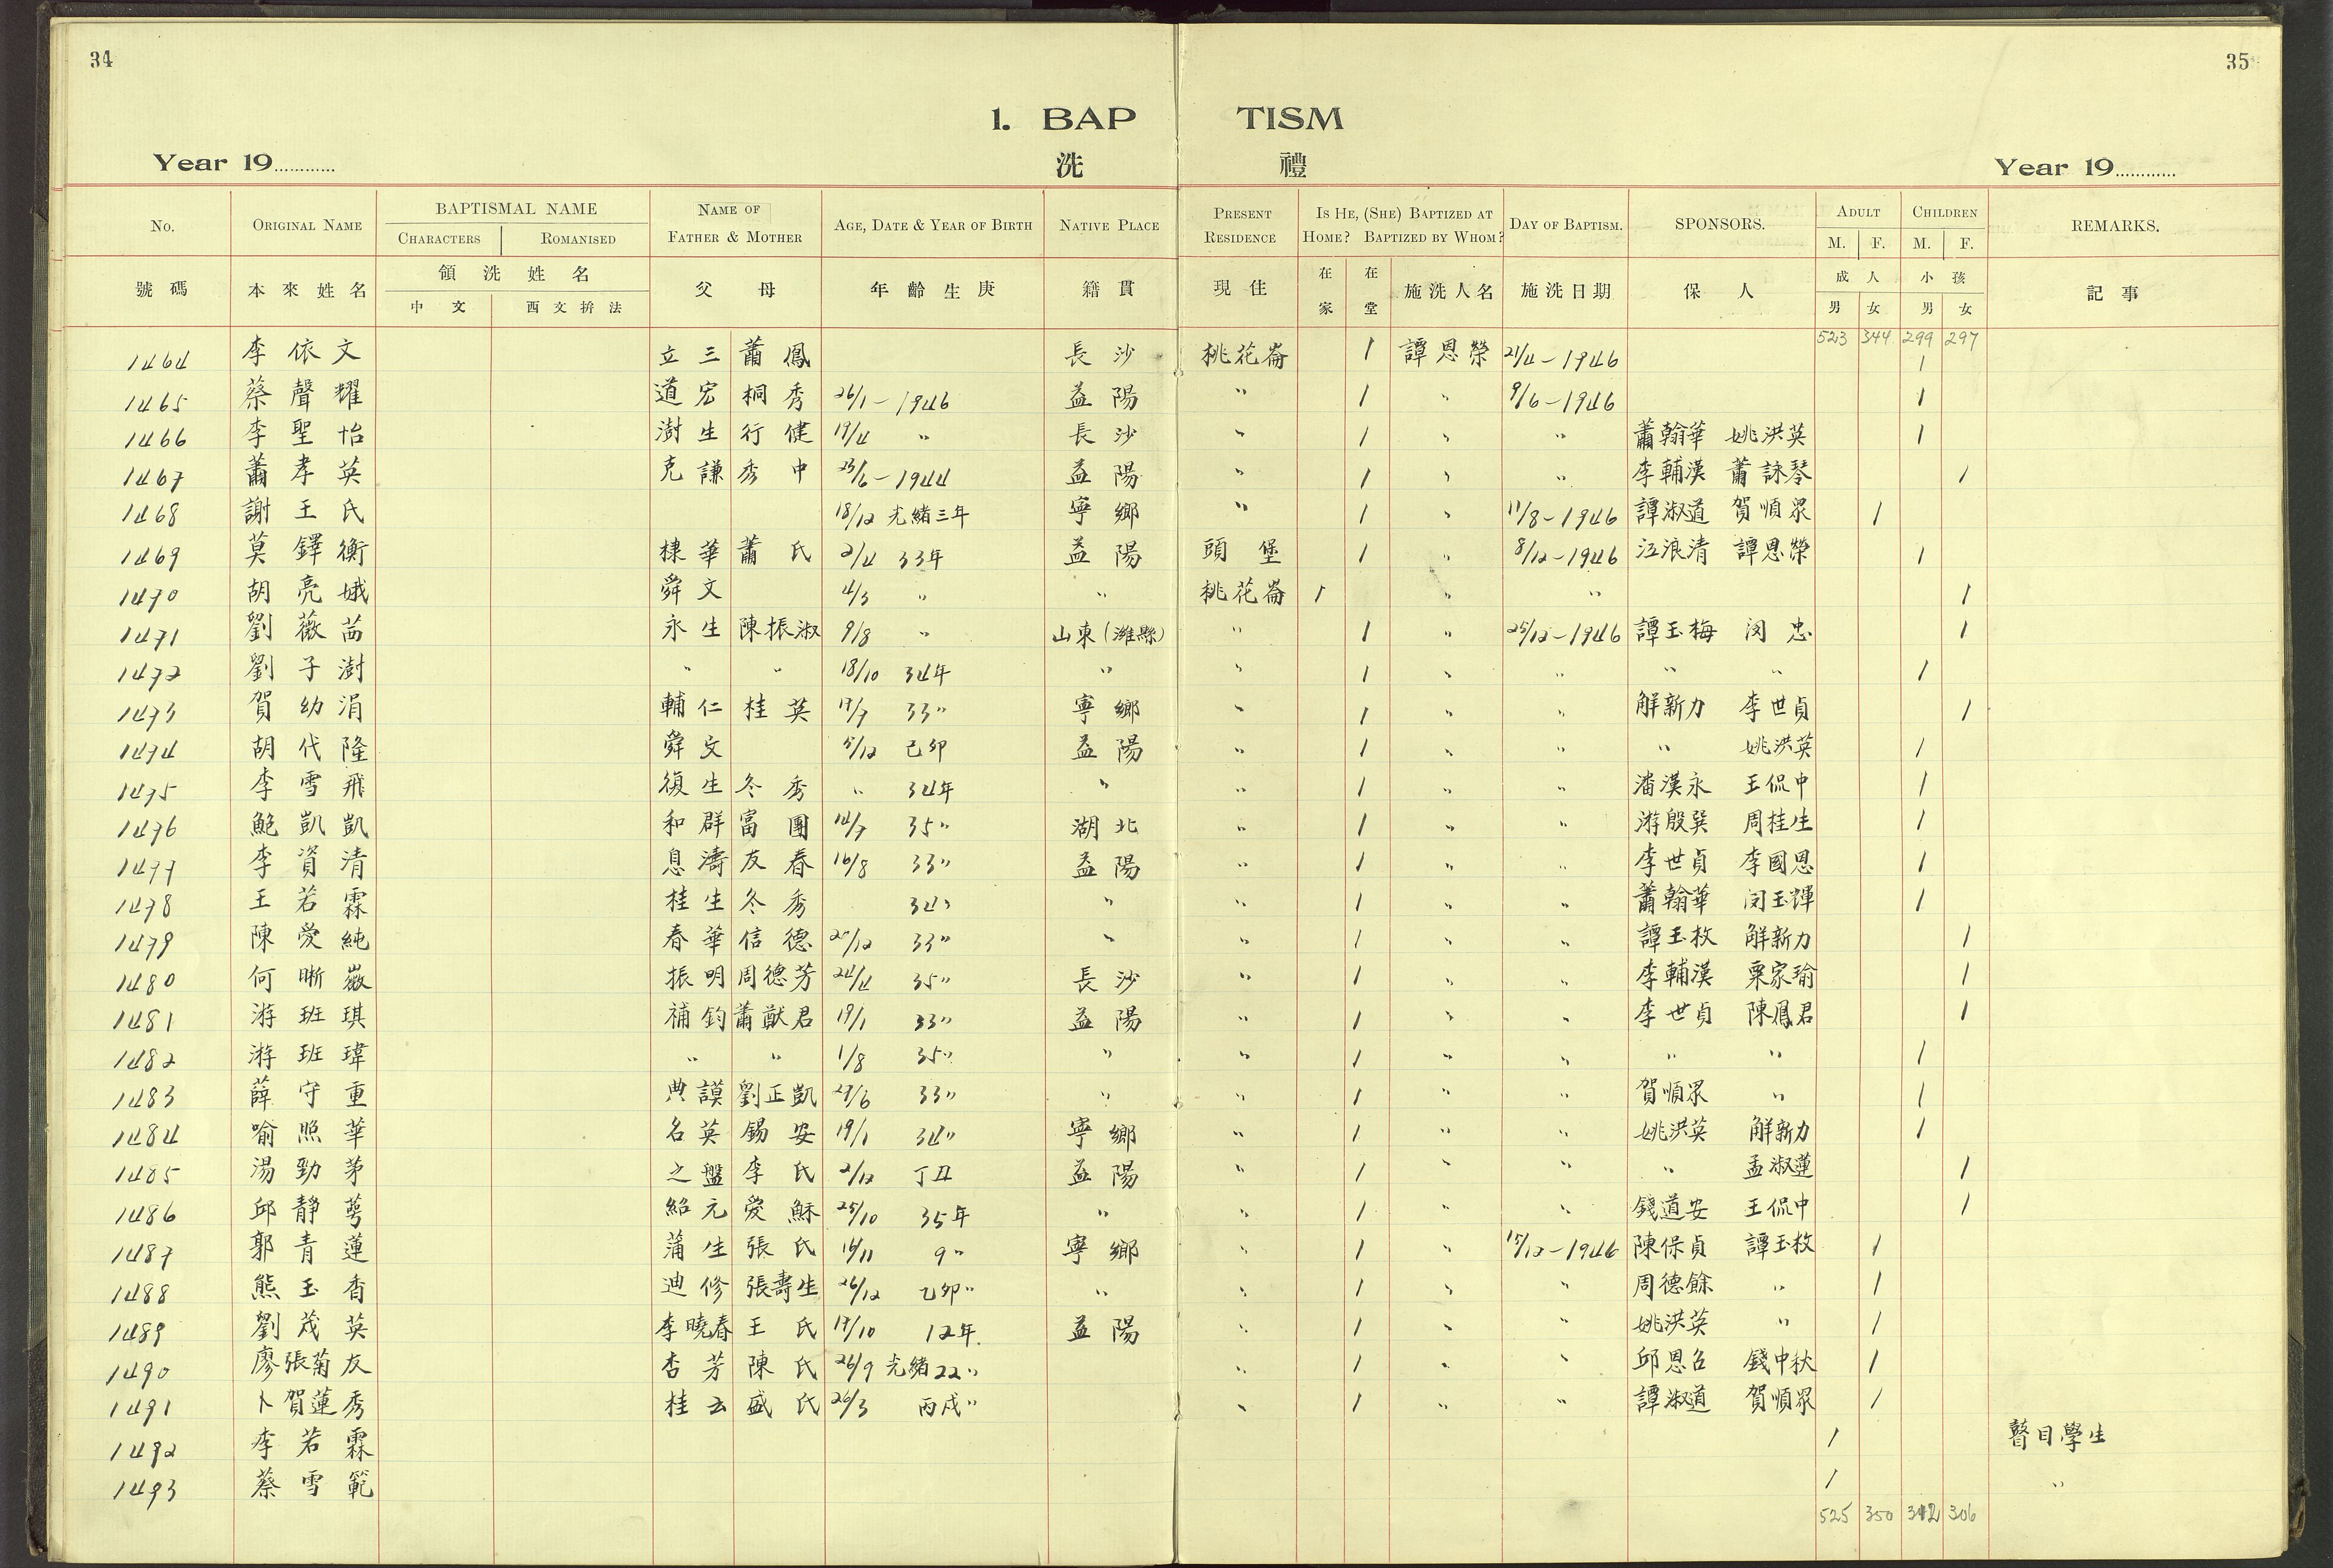 34
35
1. BAP TISM
Year 19............ 洗 禮 Year 19............
No. ORIGINAL NAME BAPTISMAL NAME CHARACTERS ROMANISED NAME OF FATHER & MOTHER AGE, DATE & YEAR OF BIRTH NATIVE PLACE PRESENT RESIDENCE IS HE, (SHE) BAPTIZED AT HOME? BAPTIZED BY WHOM? DAY OF BAPTISM. SPONSORS. ADULT M. F. CHILDREN M. F. REMARKS.
號碼 本來姓名 領洗姓名 中文 西文拚法 父母 年齡生庚 籍貫 現住 在家 在堂 施洗人名 施洗日期 保人 成人 男 女 小孩 男 女 記事
523 344 299 297
1464 李依文 立三 蕭鳳 長沙 桃花崙 1 譚恩榮 21/4-1946 1
1465 蔡聲耀 道宏 桐秀 26/1-1946 益陽 " 1 " 9/6-1946 1
1466 李聖怡 澍生 行健 19/4 " 長沙 " 1 " " 蕭翰華 姚洪英 1
1467 蕭孝英 克謙 秀中 23/6-1944 益陽 " 1 " " 李輔漢 蕭詠琴 1
1468 謝王氏 18/12 光緒三年 寧鄉 " 1 " 11/8-1946 譚淑道 賀順眾 1
1469 莫鐸衡 棣華 蕭氏 2/4 33年 益陽 頭堡 1 " 8/12-1946 江浪清 譚恩榮 1
1470 胡亮娥 舜文 4/3 " " 桃花崙 1 " " 1
1471 劉薇茁 永生 陳振淑 9/8 " 山東(濰縣) " 1 " 25/12-1946 譚玉梅 闵忠 1
1472 劉子澍 " " 18/10 34年 " " 1 " " " " 1
1473 賀幼涓 輔仁 桂英 17/7 33" 寧鄉 " 1 " " 解新力 李世貞 1
1474 胡代隆 舜文 5/12 己卯 益陽 " 1 " " " 姚洪英 1
1475 李雪飛 復生 冬秀 " 34年 " " 1 " " 潘漢永 王侃中 1
1476 鮑凱凱 和群 富團 14/7 35" 湖北 " 1 " " 游殷巽 周桂生 1
1477 李資清 息濤 友春 16/8 33" 益陽 " 1 " " 李世貞 李國恩 1
1478 王若霖 桂生 冬秀 34" " " 1 " " 蕭翰華 闵玉譁 1
1479 陳愛純 春華 信德 20/12 33" " " 1 " " 譚玉枚 解新力 1
1480 何晰嶶 振明 周德芳 24/4 35" 長沙 " 1 " " 李輔漢 粟家瑜 1
1481 游班琪 補鈞 蕭猷君 19/1 33" 益陽 " 1 " " 李世貞 陳鳳君 1
1482 游班瑋 " " 1/8 35" " " 1 " " " " 1
1483 薛守重 典謨 劉正凱 27/6 33" " " 1 " " 賀順眾 " 1
1484 喻照華 名英 錫安 19/1 34" 寧鄉 " 1 " " 姚洪英 解新力 1
1485 湯勁茅 之盤 李氏 2/12 丁丑 益陽 " 1 " " " 孟淑蓮 1
1486 邱靜萼 紹元 愛穌 25/10 35年 " " 1 " " 錢道安 王侃中 1
1487 郭青蓮 蒲生 張氏 16/11 9" 寧鄉 " 1 " 15/12-1946 陳保貞 譚玉枚 1
1488 熊玉香 迪修 張壽生 26/12 乙卯" " " 1 " " 周德餘 " 1
1489 劉茂英 李曉春 王氏 17/10 12年 益陽 " 1 " " 姚洪英 " 1
1490 廖張菊友 杏芳 陳氏 26/9 光緒22" " 1 " " 邱恩召 錢中秋 1
1491 卜賀蓮秀 桂云 盛氏 26/3 丙戌" " 1 " " 譚淑道 賀順眾 1
1492 李若霖 1 瞽目學生
1493 蔡雪範 1 "
525 350 312 306